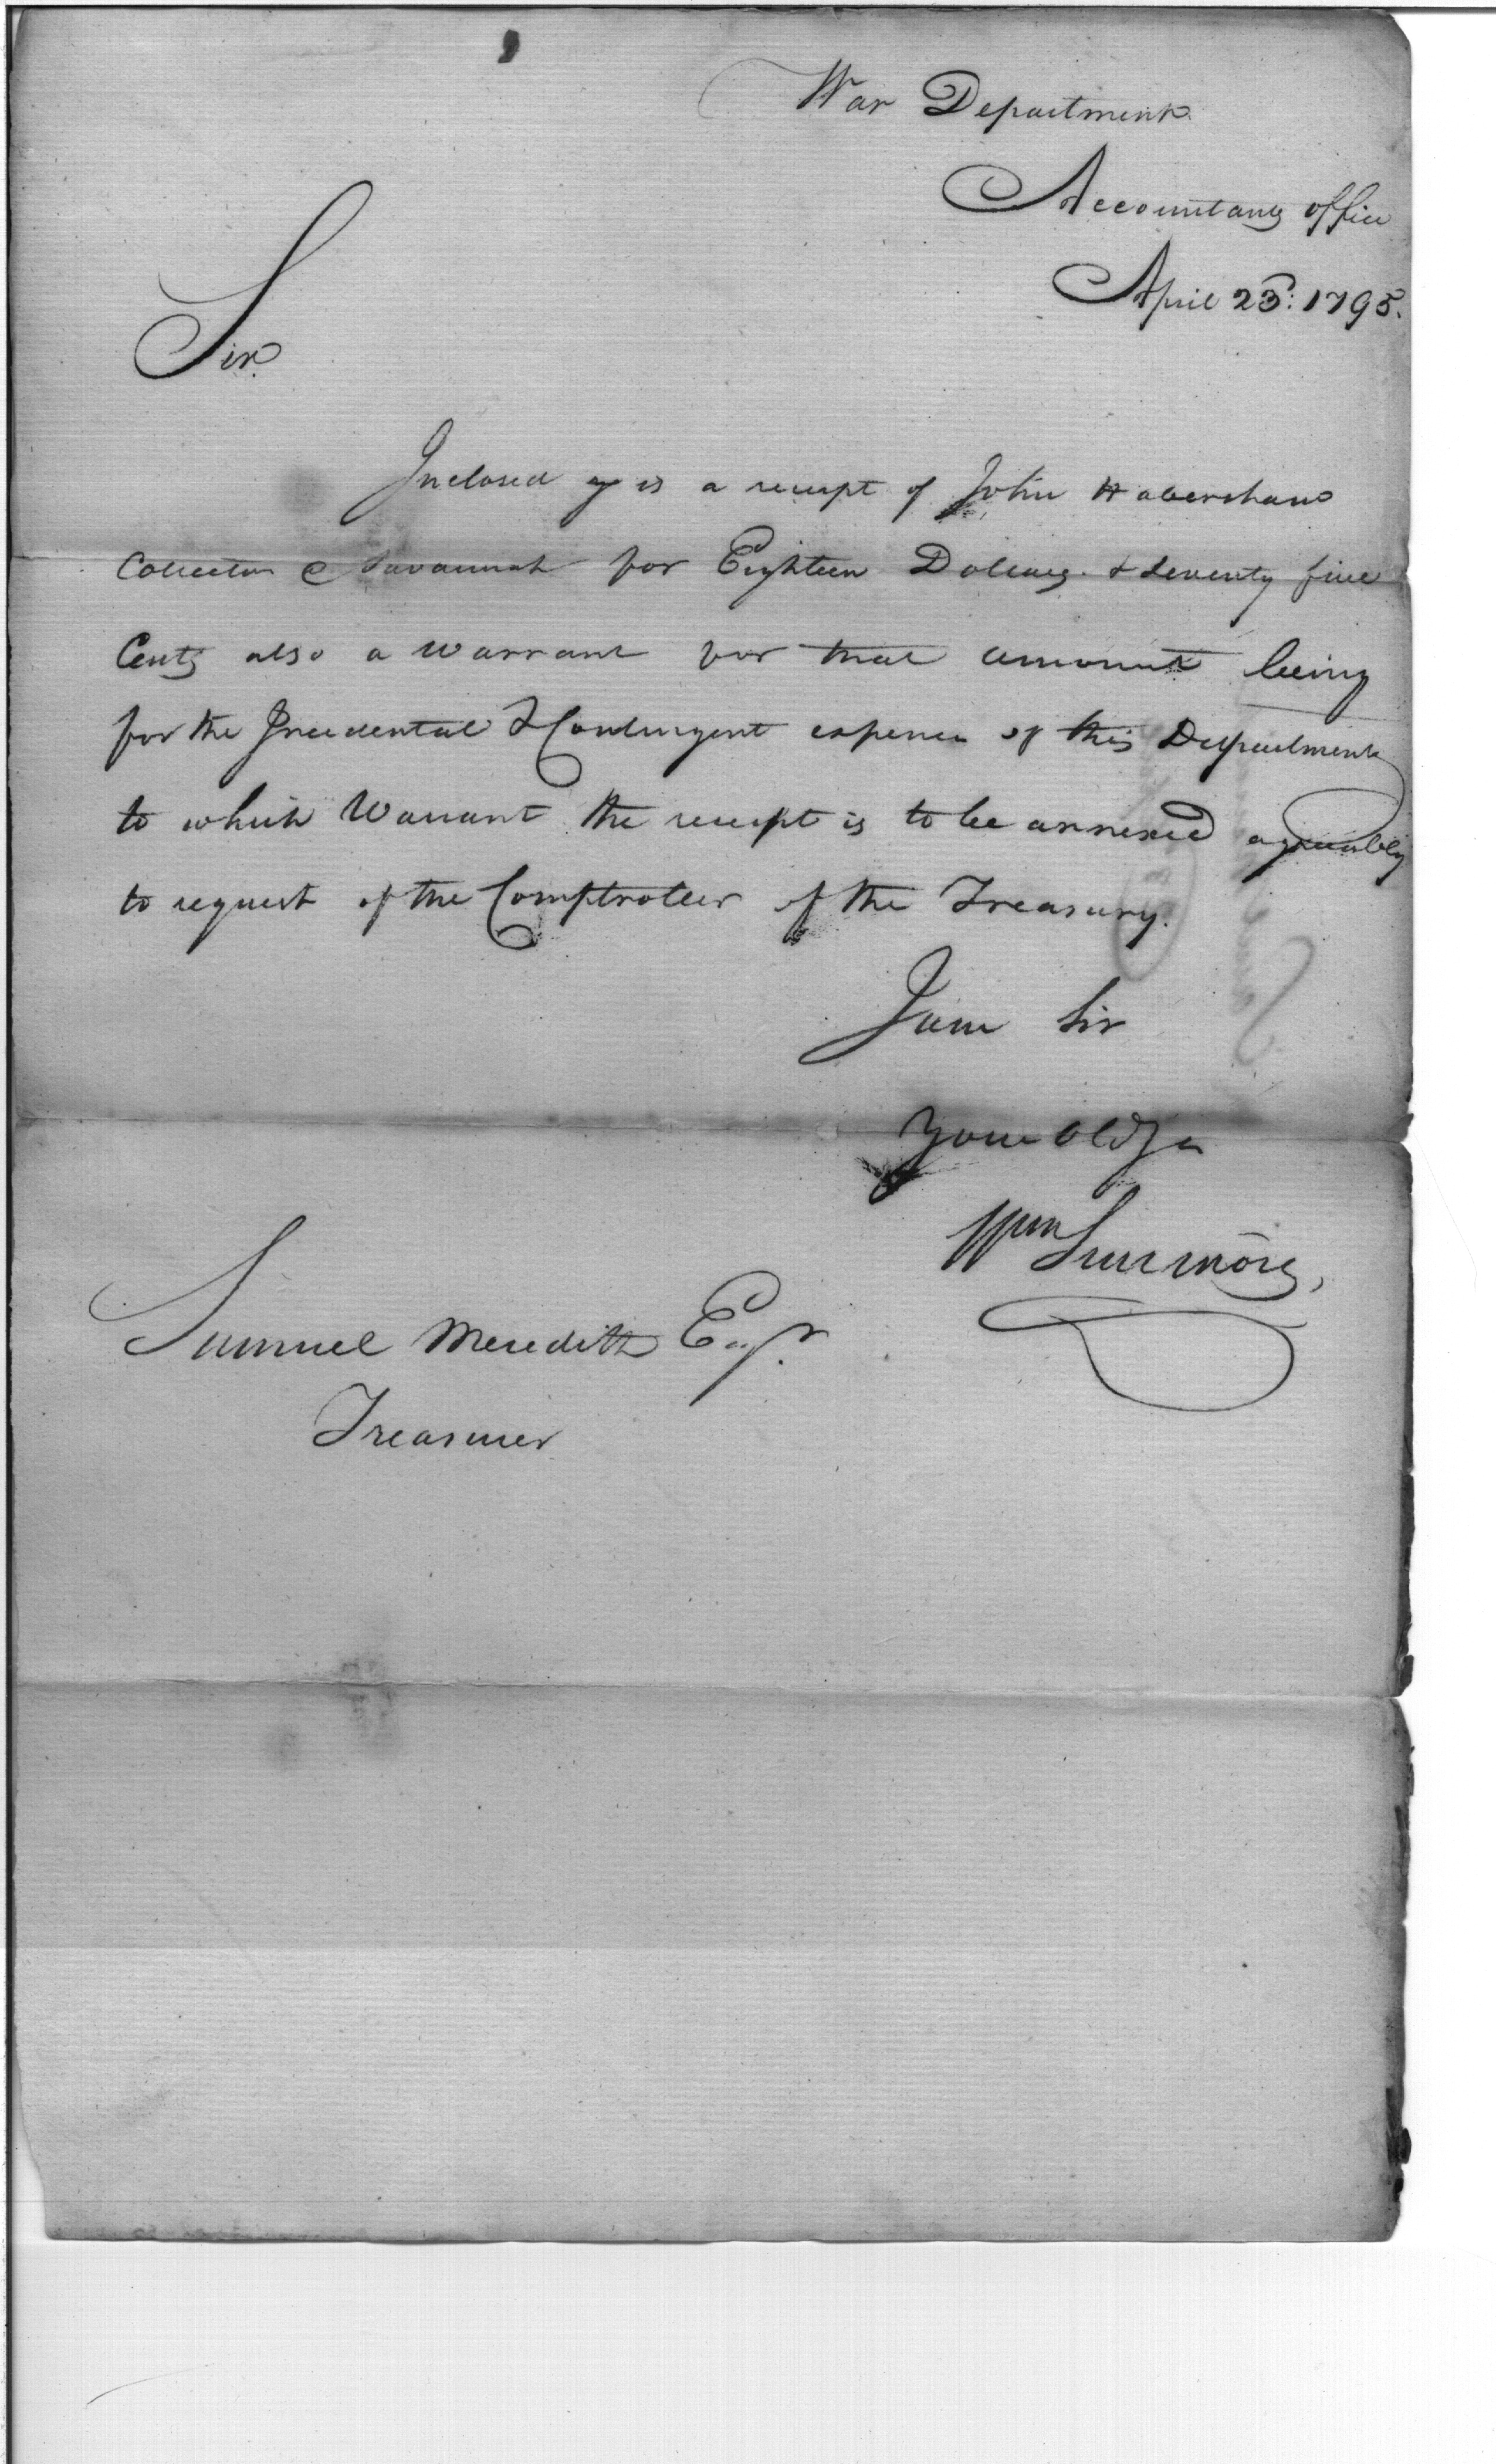 War Department
Accountants office
April 23d: 1795.
Sir
Inclosed is a receipt of John Habersham
Collector @ Savannah for Eighteen Dollars & seventy five
Cents also a Warrant for that amount being
for the Incidental & Contingent expences of this Department
to which Warrant the receipt is to be annexed agreeably
to request of the Comptroller of the Treasury.
I am Sir
Your Obd
Wm Simmons,
Samuel Meredith Esqr.
Treasurer